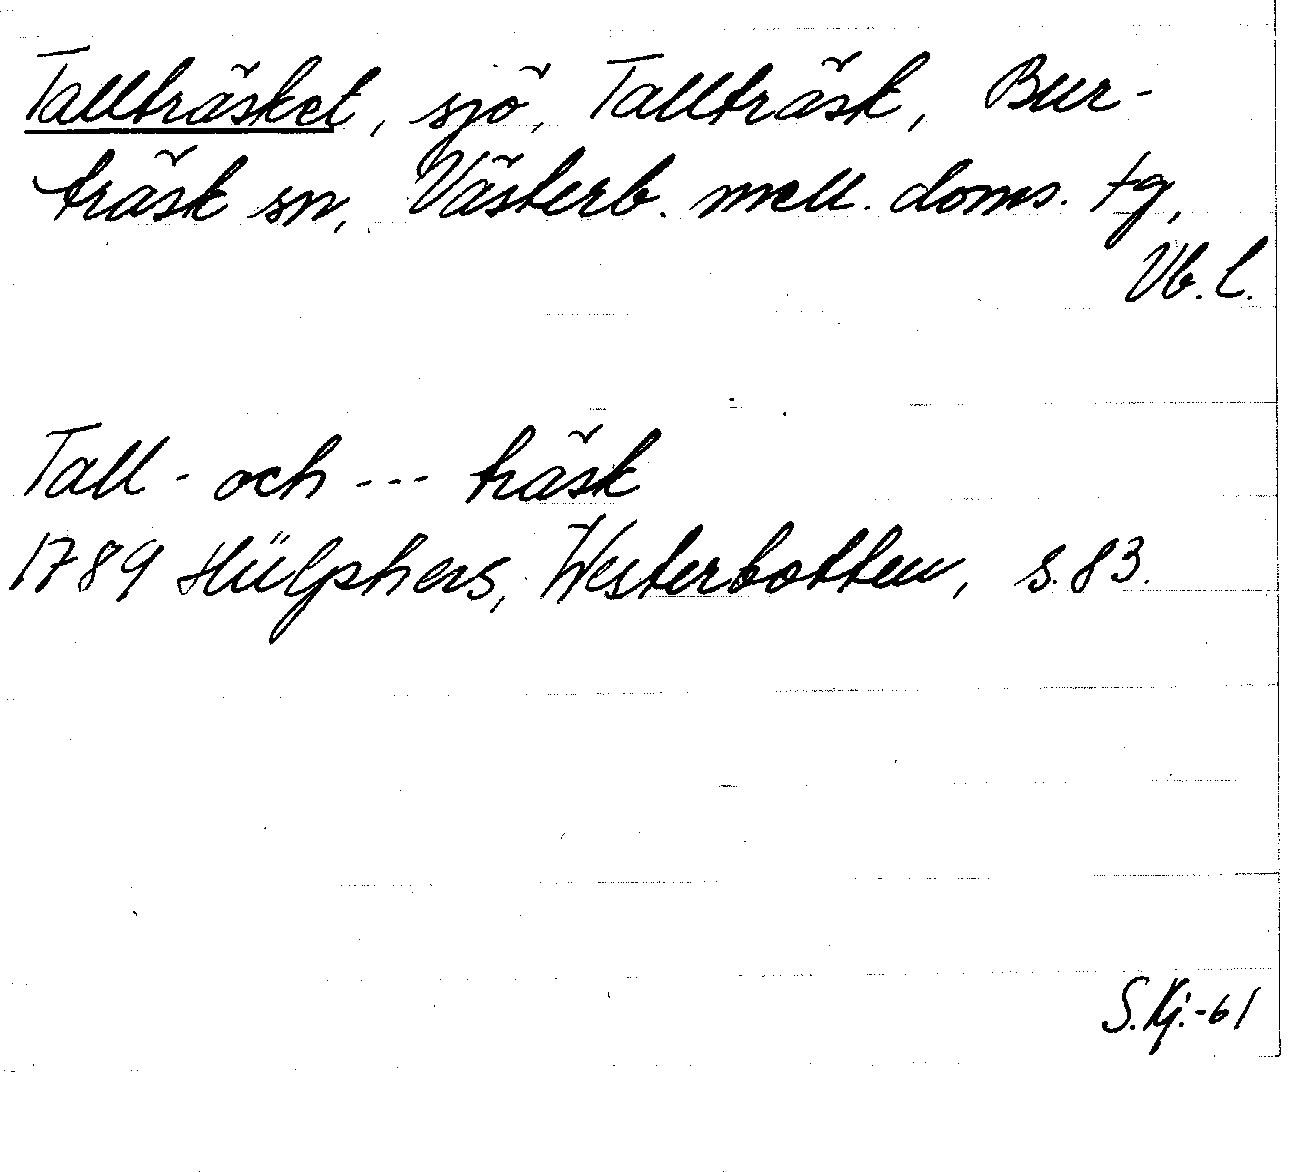 Tallträsket, sjö, Tallträsk, Bur-
träsk sn, Västerb. mell. doms. tg,
Vb. l.
Tall- och --- träsk
1789 Hülphers, Westerbotten, s. 83.
S. Kj. -61